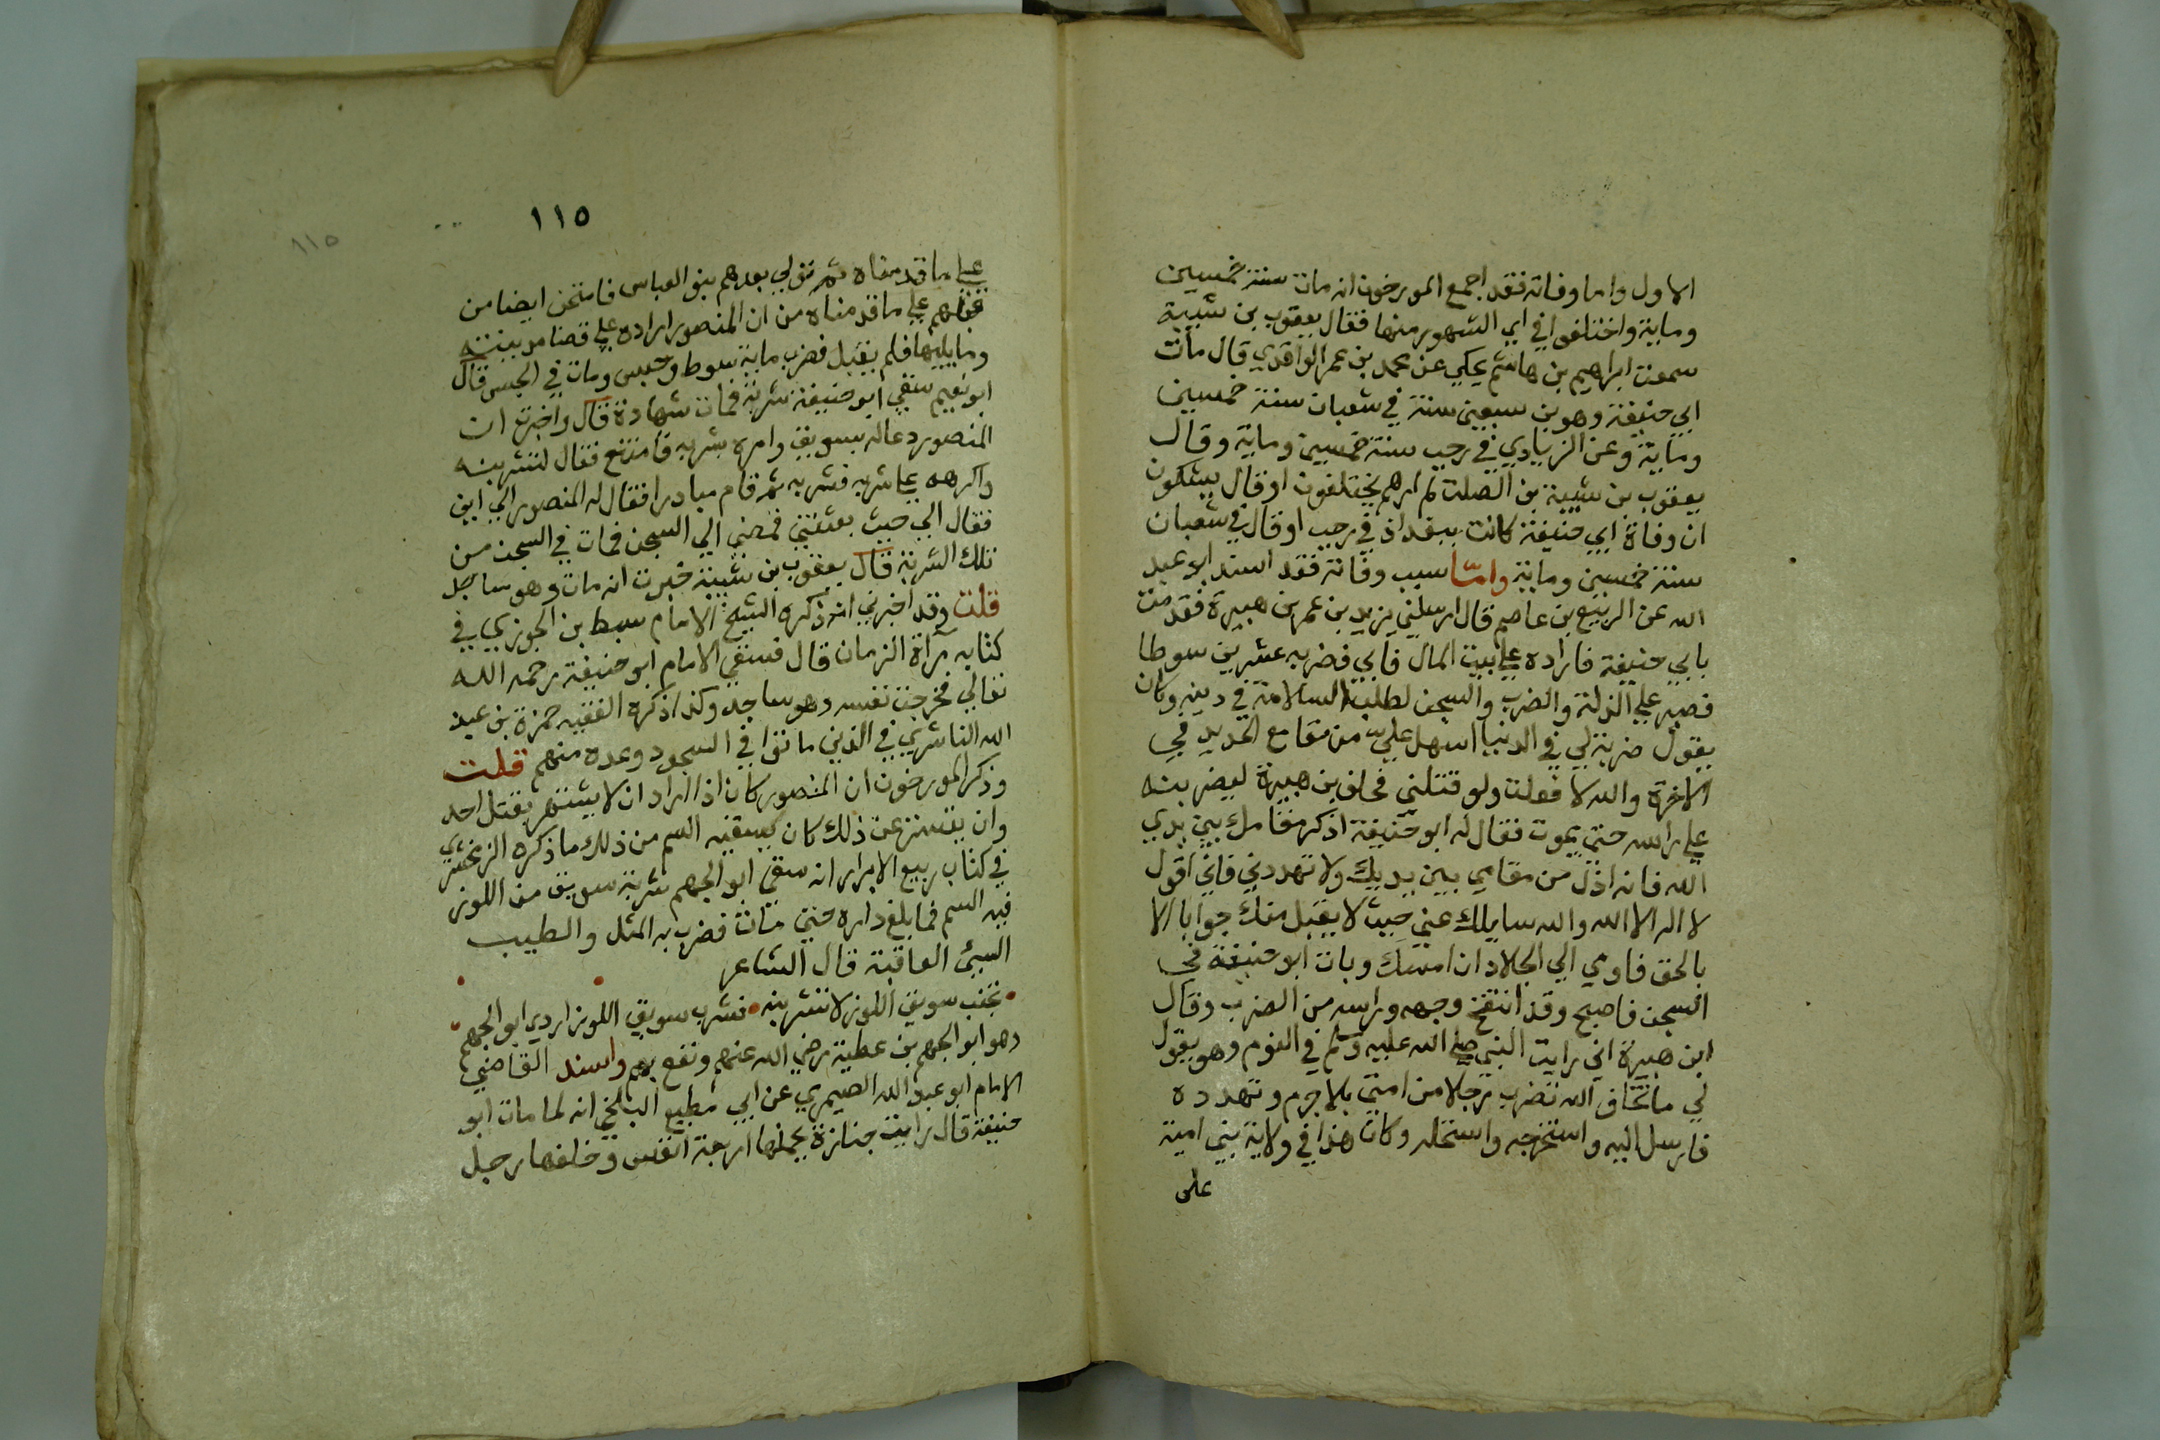 الاول واما وفاته فقد اجمع المورخون انه مات سنة خمسين
وماية واختلفوا في اي الشهور منها فقال يعقوب بن شيبة
سمعت ابراهيم بن هاشم يحكي عن محمد بن عمر الواقدي قال مات
ابي حنيفة وهو بن سبعين سنة في شعبان سنة خمسين
وماية وعن الزيادي في رجب سنة خمسين وماية وقال
يعقوب بن شيبة بن الصلت لم ارهم يختلفون او قال يشكون
ان وفاة ابي حنيفة كانت ببغداد في رجب او قال في شعبان
سنة خمسين وماية واما سبب وفاته فقد اسند ابو عبد
الله عن الربيع بن عاصم قال ارسلني يزيد بن عمر بن هبيرة فقدمت
بابي حنيفة فاراده علي بيت المال فابي فضربه عشرين سوطا
فصبر علي الذلة والضرب والسجن لطلب السلامة في دينه وكان
يقول ضربة لي في الدنيا اسهل علي من مقامع الحديد في
الاخرة والله لا فعلت ولو قتلني فحلف بن هبيرة ليضربنه
علي راسه حتي يموت فقال له ابو حنيفة اذكر مقامك بين يدي
الله فانه اذل من مقامي بين يديك ولا تهددني فاني اقول
لا اله الا الله والله سايلك عني حيث لا يقبل منك جوابا الا
بالحق فاومي الي الجلاد ان امسك وبات ابو حنيفة في
السجن فاصبح وقد انتفخ وجهه وراسه من الضرب وقال
ابن هبيرة اني رايت النبي صلي الله عليه وسلم في النوم وهو يقول
لي ما تخاف الله تضرب رجلا من امتي بلا جرم وتهدده
فارسل اليه واستخرجه واستحله وكان هذا في ولاية بني امية
على
١١٥
١١٥
علي ما قدمناه ثم تولي بعدهم بنو العباس فامتحن ايضا من
علي ما قدمناه من ان المنصور اراده علي قضا مدينته
وما يليها فلم يقبل فضرب ماية سوط وحبس ومات في الحبس قال
ابو نعيم سقي ابو حنيفة شربة فمات شهادة قال واخبرت ان
المنصور دعا له بسويق وامره بشربه فامتنع فقال لتشربنه
واكرهه علي شربه فشربه ثم قام مبادرا فقال له المنصور الي اين
فقال الي حيث بعثتني فمضي الي السجن فمات في السجن من
تلك الشربة قال يعقوب بن شيبة خبرت انه مات وهو ساجد
قلت وقد اخبرني انه ذكره الشيخ الامام سبط بن الجوزي في
كتابه مرآة الزمان قال فسقي الامام ابو حنيفة رحمه الله
تعالي فخرجت نفسه وهو ساجد وكذا ذكره الفقيه حمزة بن عبد
الله الناشري في الذين ماتوا في السجود وعده منهم قلت
وذكر المورخون ان المنصور كان اذا اراد ان لا يشتهر بقتل احد
وان يتستر عن ذلك كان يسقيه السم من ذلك ما ذكره الزمخشري
في كتاب ربيع الابرار انه سقي ابو الجهم شربة سويق من اللوز
فيه السم فما بلغ داره حتي مات فضرب به المثل والطيب
السيئ العاقبة قال الشاعر
تجنب سويق اللوز لا تشربنه فشرب سويق اللوز اردي ابو الجهم
وهو ابو الجهم بن عطية رضي الله عنهم ونفع بهم واسند القاضي
الامام ابو عبد الله الصيمري عن ابي مطيع البلخي انه لما مات ابو
حنيفة قال رايت جنازة يحملها اربعة انفس وخلفها رجل